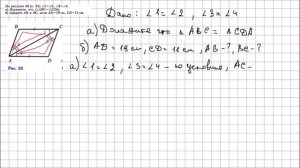 На рисунке 53 (с. 31) ∠1=∠2, ∠3=∠4.
а) Докажите, что △ABC=△CDA;
б) найдите AB и BC, если AD=19 см, CD=11 см.
Рис. 53
Дано: ∠1=∠2, ∠3=∠4
а) Докажите что △ABC = △CDA
б) AD = 19 см, CD = 11 см, AB-? BC-?
а) ∠1=∠2, ∠3=∠4 - по условию, AC-